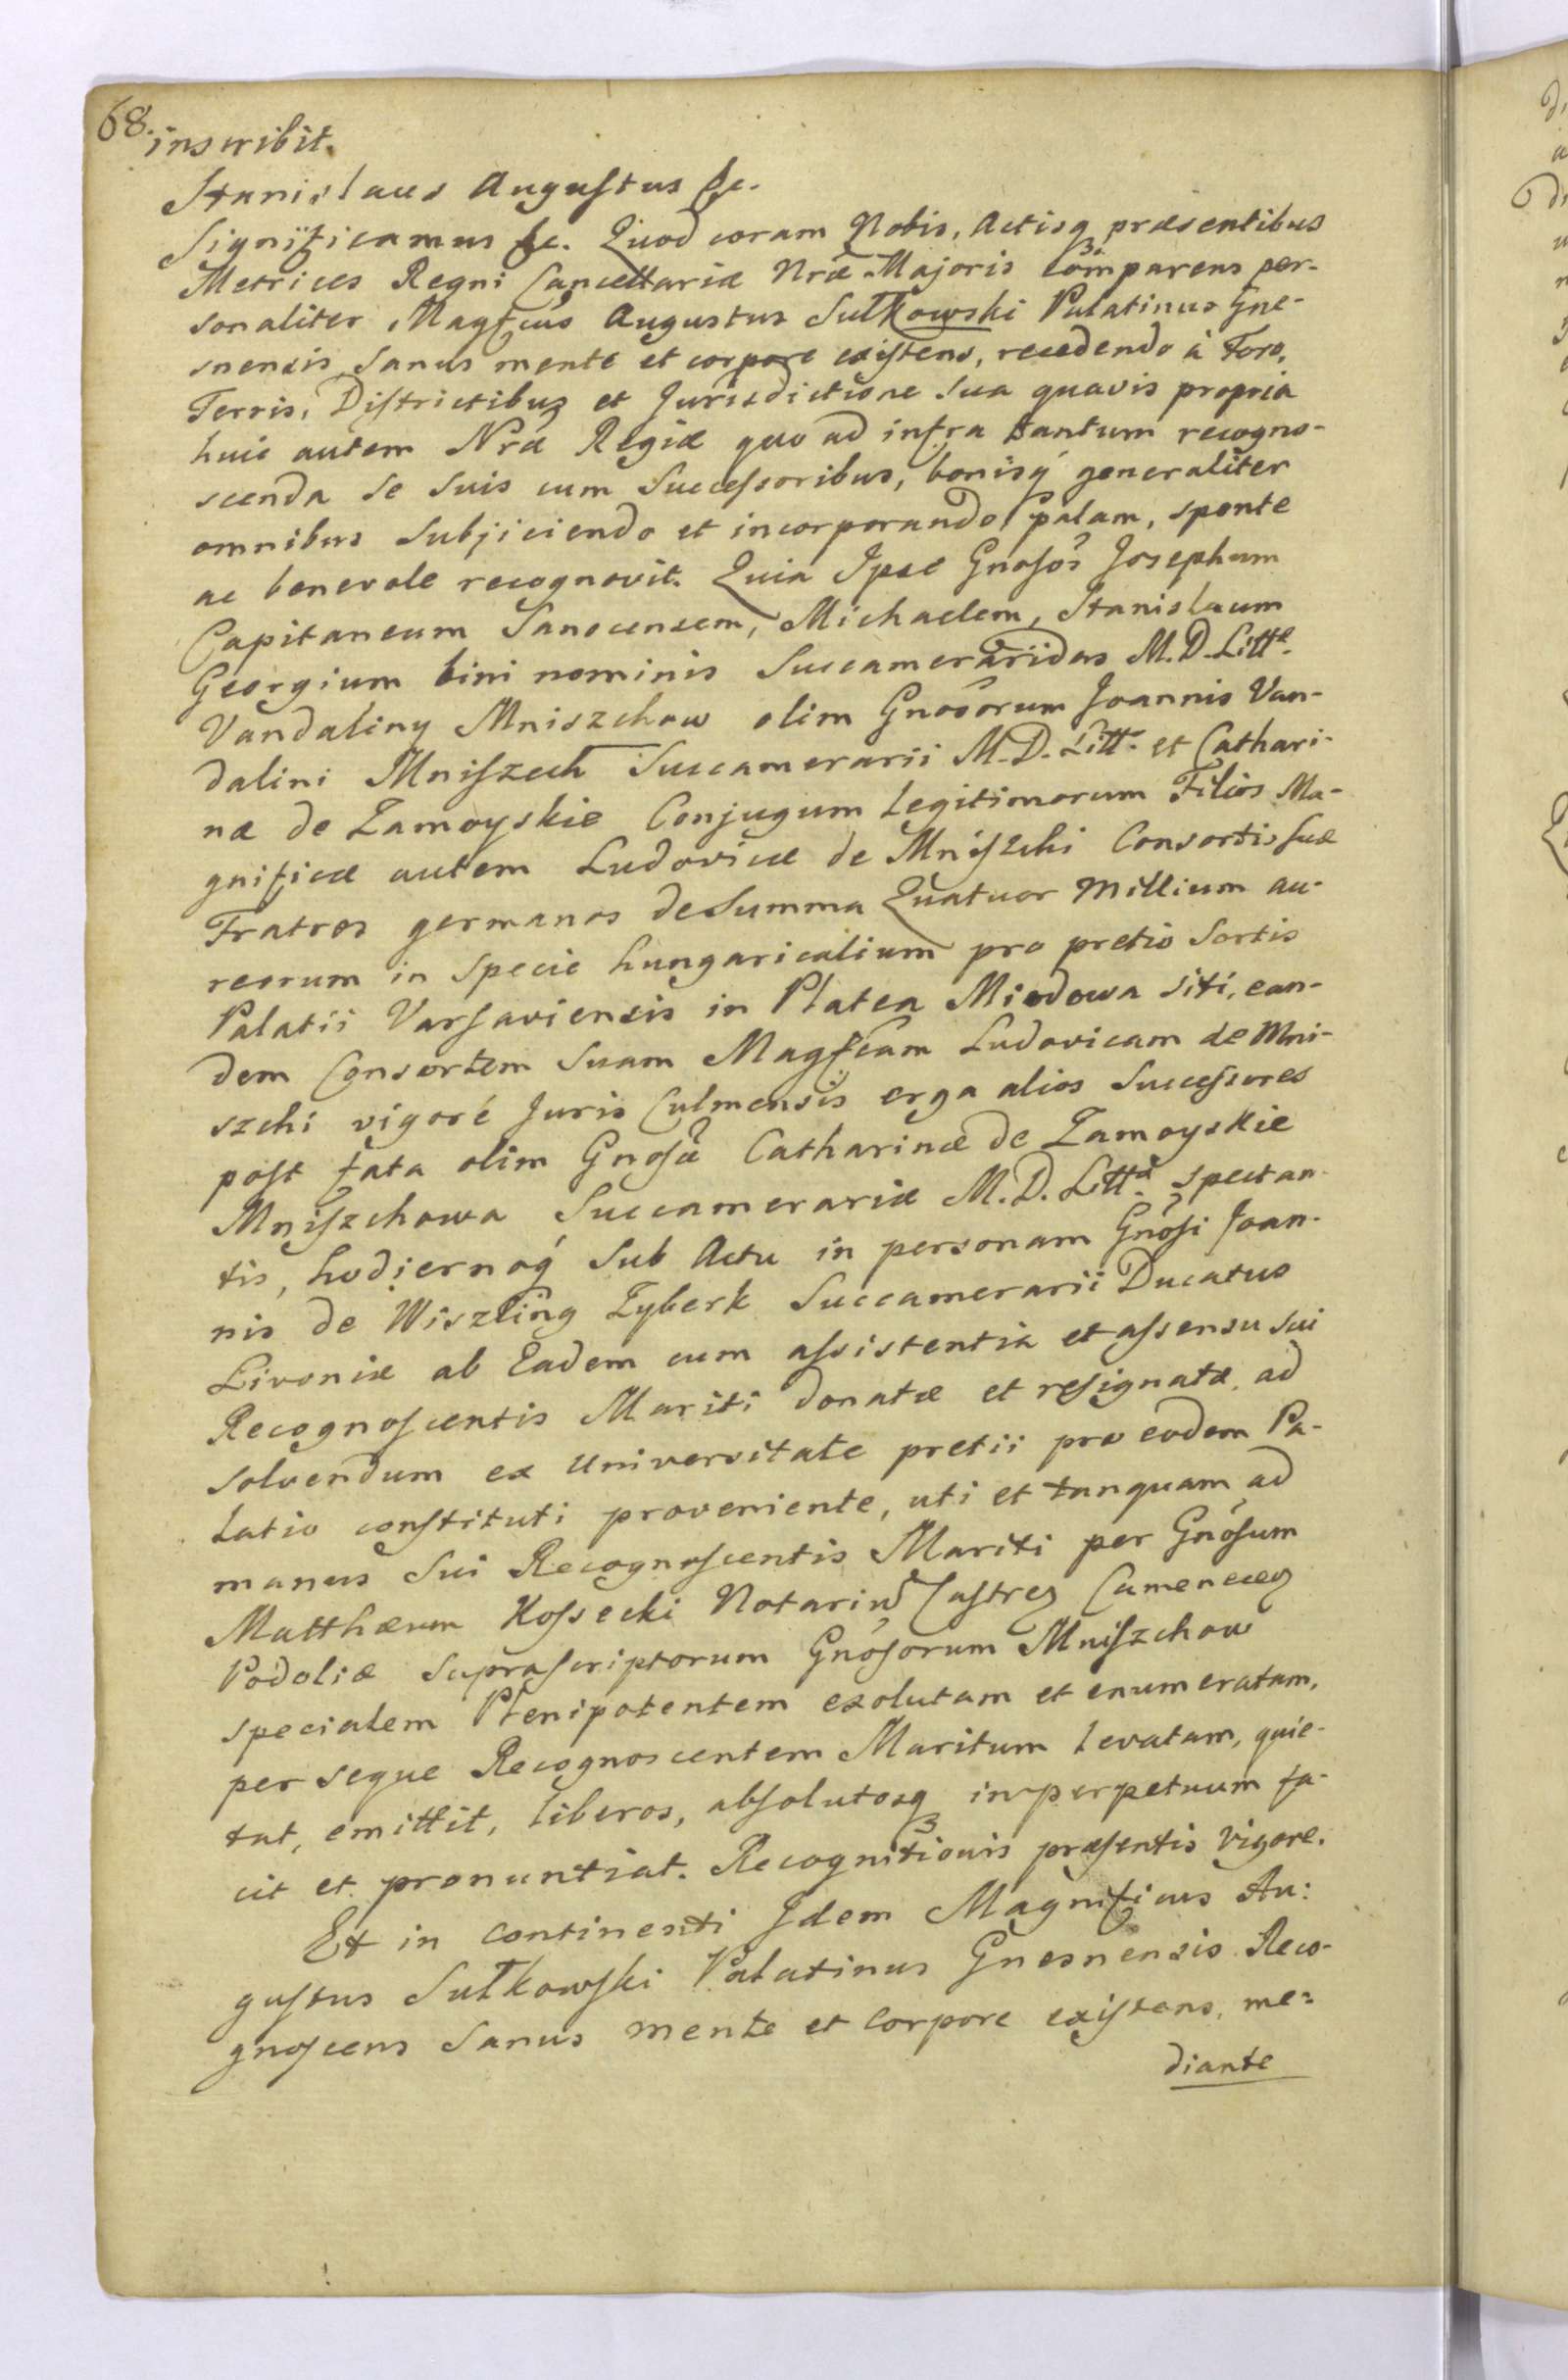 68.
inscribit.
Stanislaus Augustus &c.
Significamus &c. Quod coram Nobis, Actisq́ præsentibus
Metrices Regni Cancellariæ Nræ Majoris comparens per-
sonaliter Magfcus Augustus Sułkowski Palatinus Gne-
snensis Sanus mente et corpore existens, recedendo à Foro,
Terris, Districtibuꝫ et Jurisdictione Sua quavis propria
huic autem Nræ Regiæ quo ad infra tantum recogno-
scenda se suis cum Successoribus, bonisq́ generaliter
omnibus Subjiciendo et incorporando palam, sponte
ac benevole recognovit. Quia Ipse Gnosos Josephum
Capitaneum Sanocensem, Michaelem, Stanislaum
Georgium bini nominis Succamerarridas M. D. Littæ
Vandaliny Mniszchow olim Gnosorum Joannis Van-
dalini Mniszech Succamerarii M. D. Litt. et Cathari-
næ de Zamoyskie Conjugum Legitimorum Filios Ma-
gnificæ autem Ludovicæ de Mniszchi Consortis Suæ
Fratres germanos de Summa Quatuor Millium au-
reorum in Specie hungaricalium pro pretio Sortis
Palatii Varsaviensis in Platea Miodowa siti, ean-
dem Consortem Suam Magfcam Ludovicam de Mni-
szchi vigore Juris Culmensis erga alios Successores
post fata olim Gnosæ Catharinæ de Zamoyskie
Mniszchowa Succamerariæ M. D. Littæ Spectan-
tis, hodiernoq́ Sub Actu in personam Gnosi Joan-
nis de Wiszling Zyberk Succamerarii Ducatus
Livoniæ ab Eadem cum assistentia et assensu sui
Recognoscentis Mariti donatæ et resignatæ, ad
solvendum ex Universitate pretii pro eodem Pa-
latio constituti proveniente, uti et tanquam ad
manus Sui Recognoscentis Mariti per Gnosum
Matthæum Kossecki Notariu Castreꝫ Cameneceꝫ
Podoliæ Suprascriptorum Gnosorum Mniszchow
specialem Plenipotentem exolutam et enumeratam,
per seque Recognoscentem Maritum levatam, quie-
tat, emittit, liberos, absolutosq́ in perpetuum fa-
cit et pronuntiat. Recognitionis præsentis vigore.
Et in continenti Idem Magnificus Au:
gustus Sułkowski Palatinus Gnesnensis Reco-
gnoscens Sanus mente et Corpore existens, me:
diante